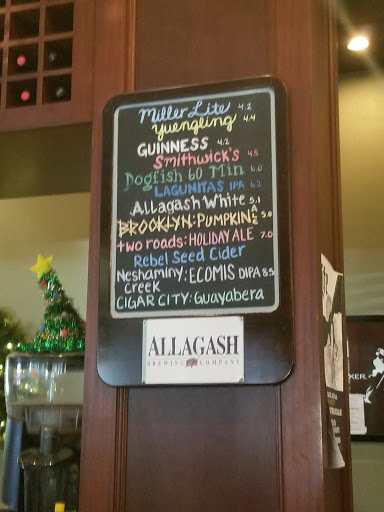 Miller Lite 4.2
Yuengling 4.4
GUINNESS 4.2
Smithwick's 4.5
Dogfish 60 Min 6.0
LAGUNITAS IPA 6.2
Allagash White 5.1
BROOKLYN: PUMPKIN ALE 5.0
two roads: HOLIDAY ALE 7.0
Rebel Seed Cider
Neshaminy Creek : ECOMIS DIPA 8.5
CIGAR CITY: Guayabera
ALLAGASH
BREWING COMPANY
KER.